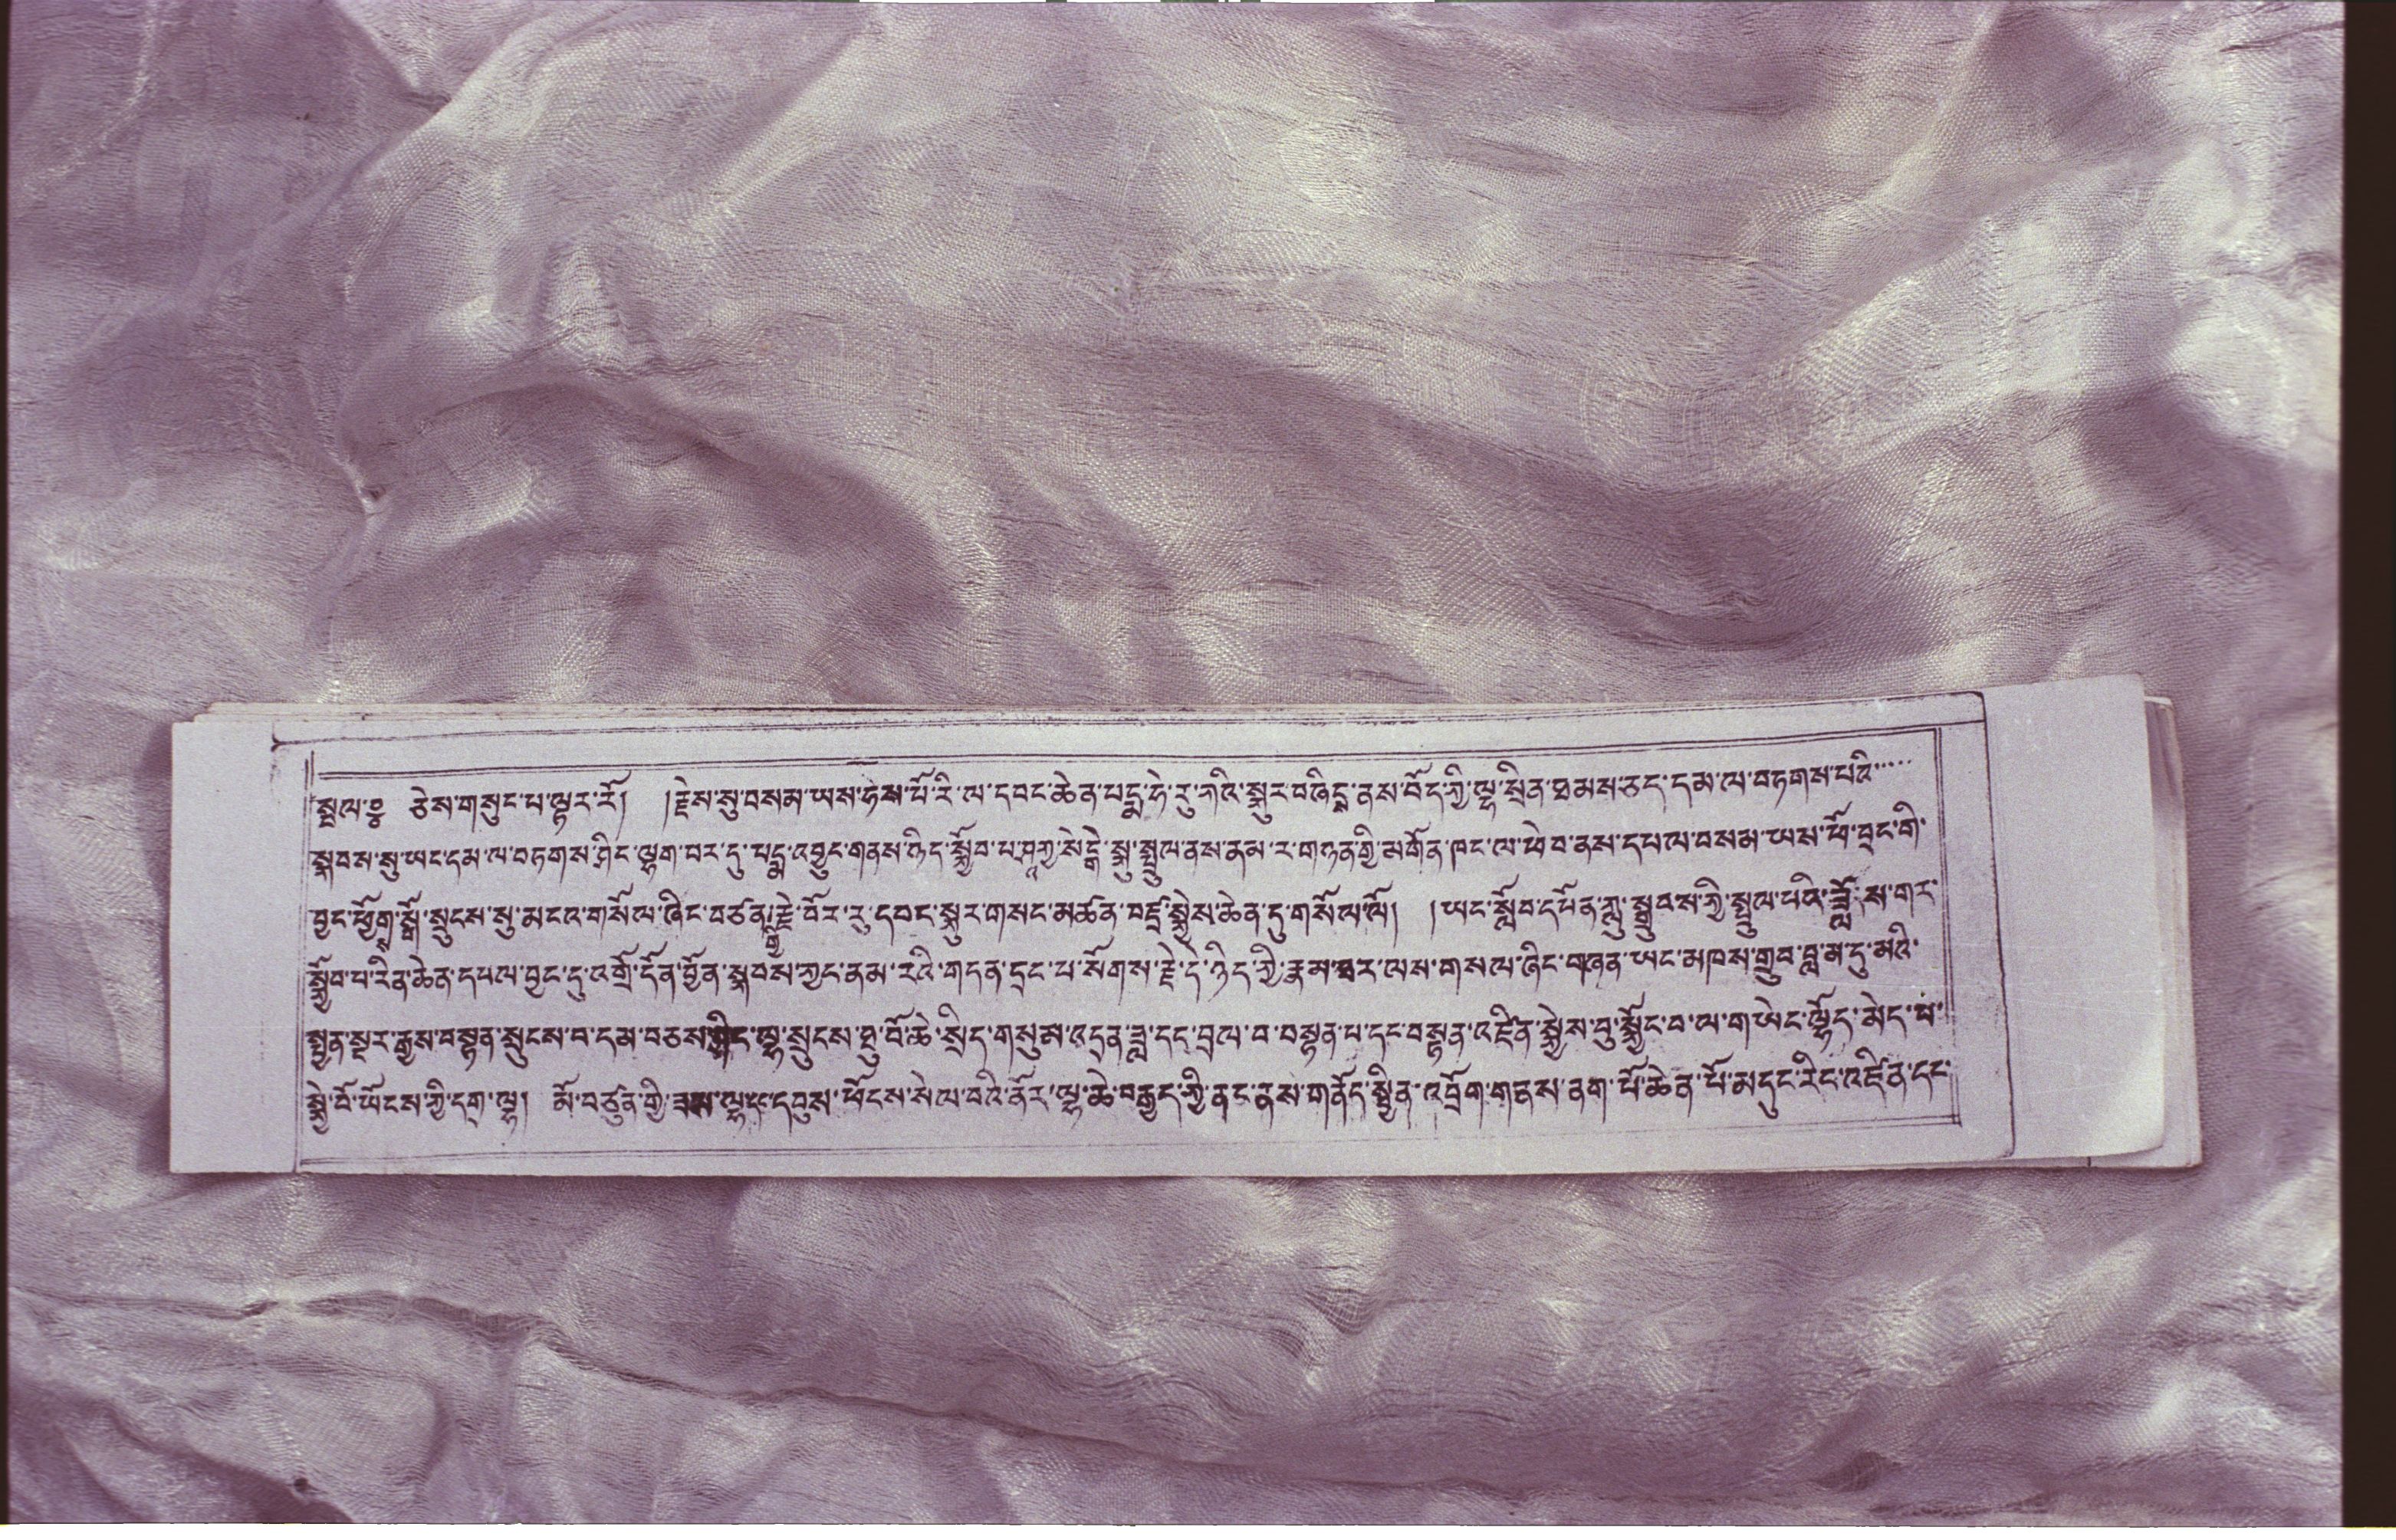 སྤྲལ་༔ ཅེས་གསུང་པ་ལྟར་རོ། །རྗེས་སུ་བསམ་ཡས་ཧེས་པོ་རི་ལ་དབང་ཆེན་པདྨ་ཧེ་རུ་ཀའི་སྐུར་བཞེངས་ནས་བོད་ཀྱི་ལྷ་སྲིན་ཐམས་ཅད་དམ་ལ་བཏགས་པའི་
སྐབས་སུ་ཡང་དམ་ལ་བཏགས་ཤིང་ལྷག་པར་དུ་པདྨ་འབྱུང་གནས་ཉིད་སློབ་པ་ཤཱཀྱ་སེངྒེ་སྐུ་སྤྲུལ་ནས་ནམ་ར་གཉན་གྱི་མགོན་ཁང་ལ་ཕེབ་ནས་དཔལ་བསམ་ཡས་ཕོ་བྲང་གི་
བྱང་ཕྱོགས་སྒོ་སྲུངས་སུ་མངའ་གསོལ་ཞིང་བཙན་རྒྱལ་རྗེ་བོར་རུ་དབང་སྐུར་གསང་མཚན་བརྫ་སྐྱེས་ཆེན་དུ་གསོལ་ལོ། །ཡང་སློབ་དཔོན་ཀླུ་སྒྲུབས་ཀྱི་སྤྲུལ་པའི་ས་གར་
སློབ་པ་རིན་ཆེན་དཔལ་བྱང་དུ་འགྲོ་དོན་བྱོན་སྐབས་ཀྱང་ནམ་རའི་གདན་དྲང་པ་སོགས་རྗེ་དེ་ཉིད་ཀྱི་རྣམ་ཐར་ལས་གསལ་ཞིང་གཞན་ཡང་མཁས་གྲུབ་བླ་མ་དུ་མའི་
སྤྱན་སྔར་རྒྱས་བསྟན་སྲུངས་བ་དམ་བཅས་ཤིང་ལྷ་སྲུངས་མཐུ་བོ་ཆེ་སྲིད་གསུམ་འདྲན་ཟླ་དང་བྲལ་བ་བསྟན་པ་དང་བསྟན་འཛིན་སྐྱེས་བུ་སྐྱོང་བ་ལ་གཡེང་ལྷོད་མེད་པ་
སྐྱེ་བོ་ཡོངས་ཀྱི་དགྲ་ལྷ། མོ་བཙུན་གྱི་ཟས་ལྷ་དང་དབུས་ཕོངས་སེལ་བའི་ནོར་ལྷ་ཆེ་བརྒྱད་ཀྱི་ནང་ནས་གནོད་སྦྱིན་འབྲོག་གནས་ནག་པོ་ཆེན་པོ་མདུང་རིང་འཛིན་དང་